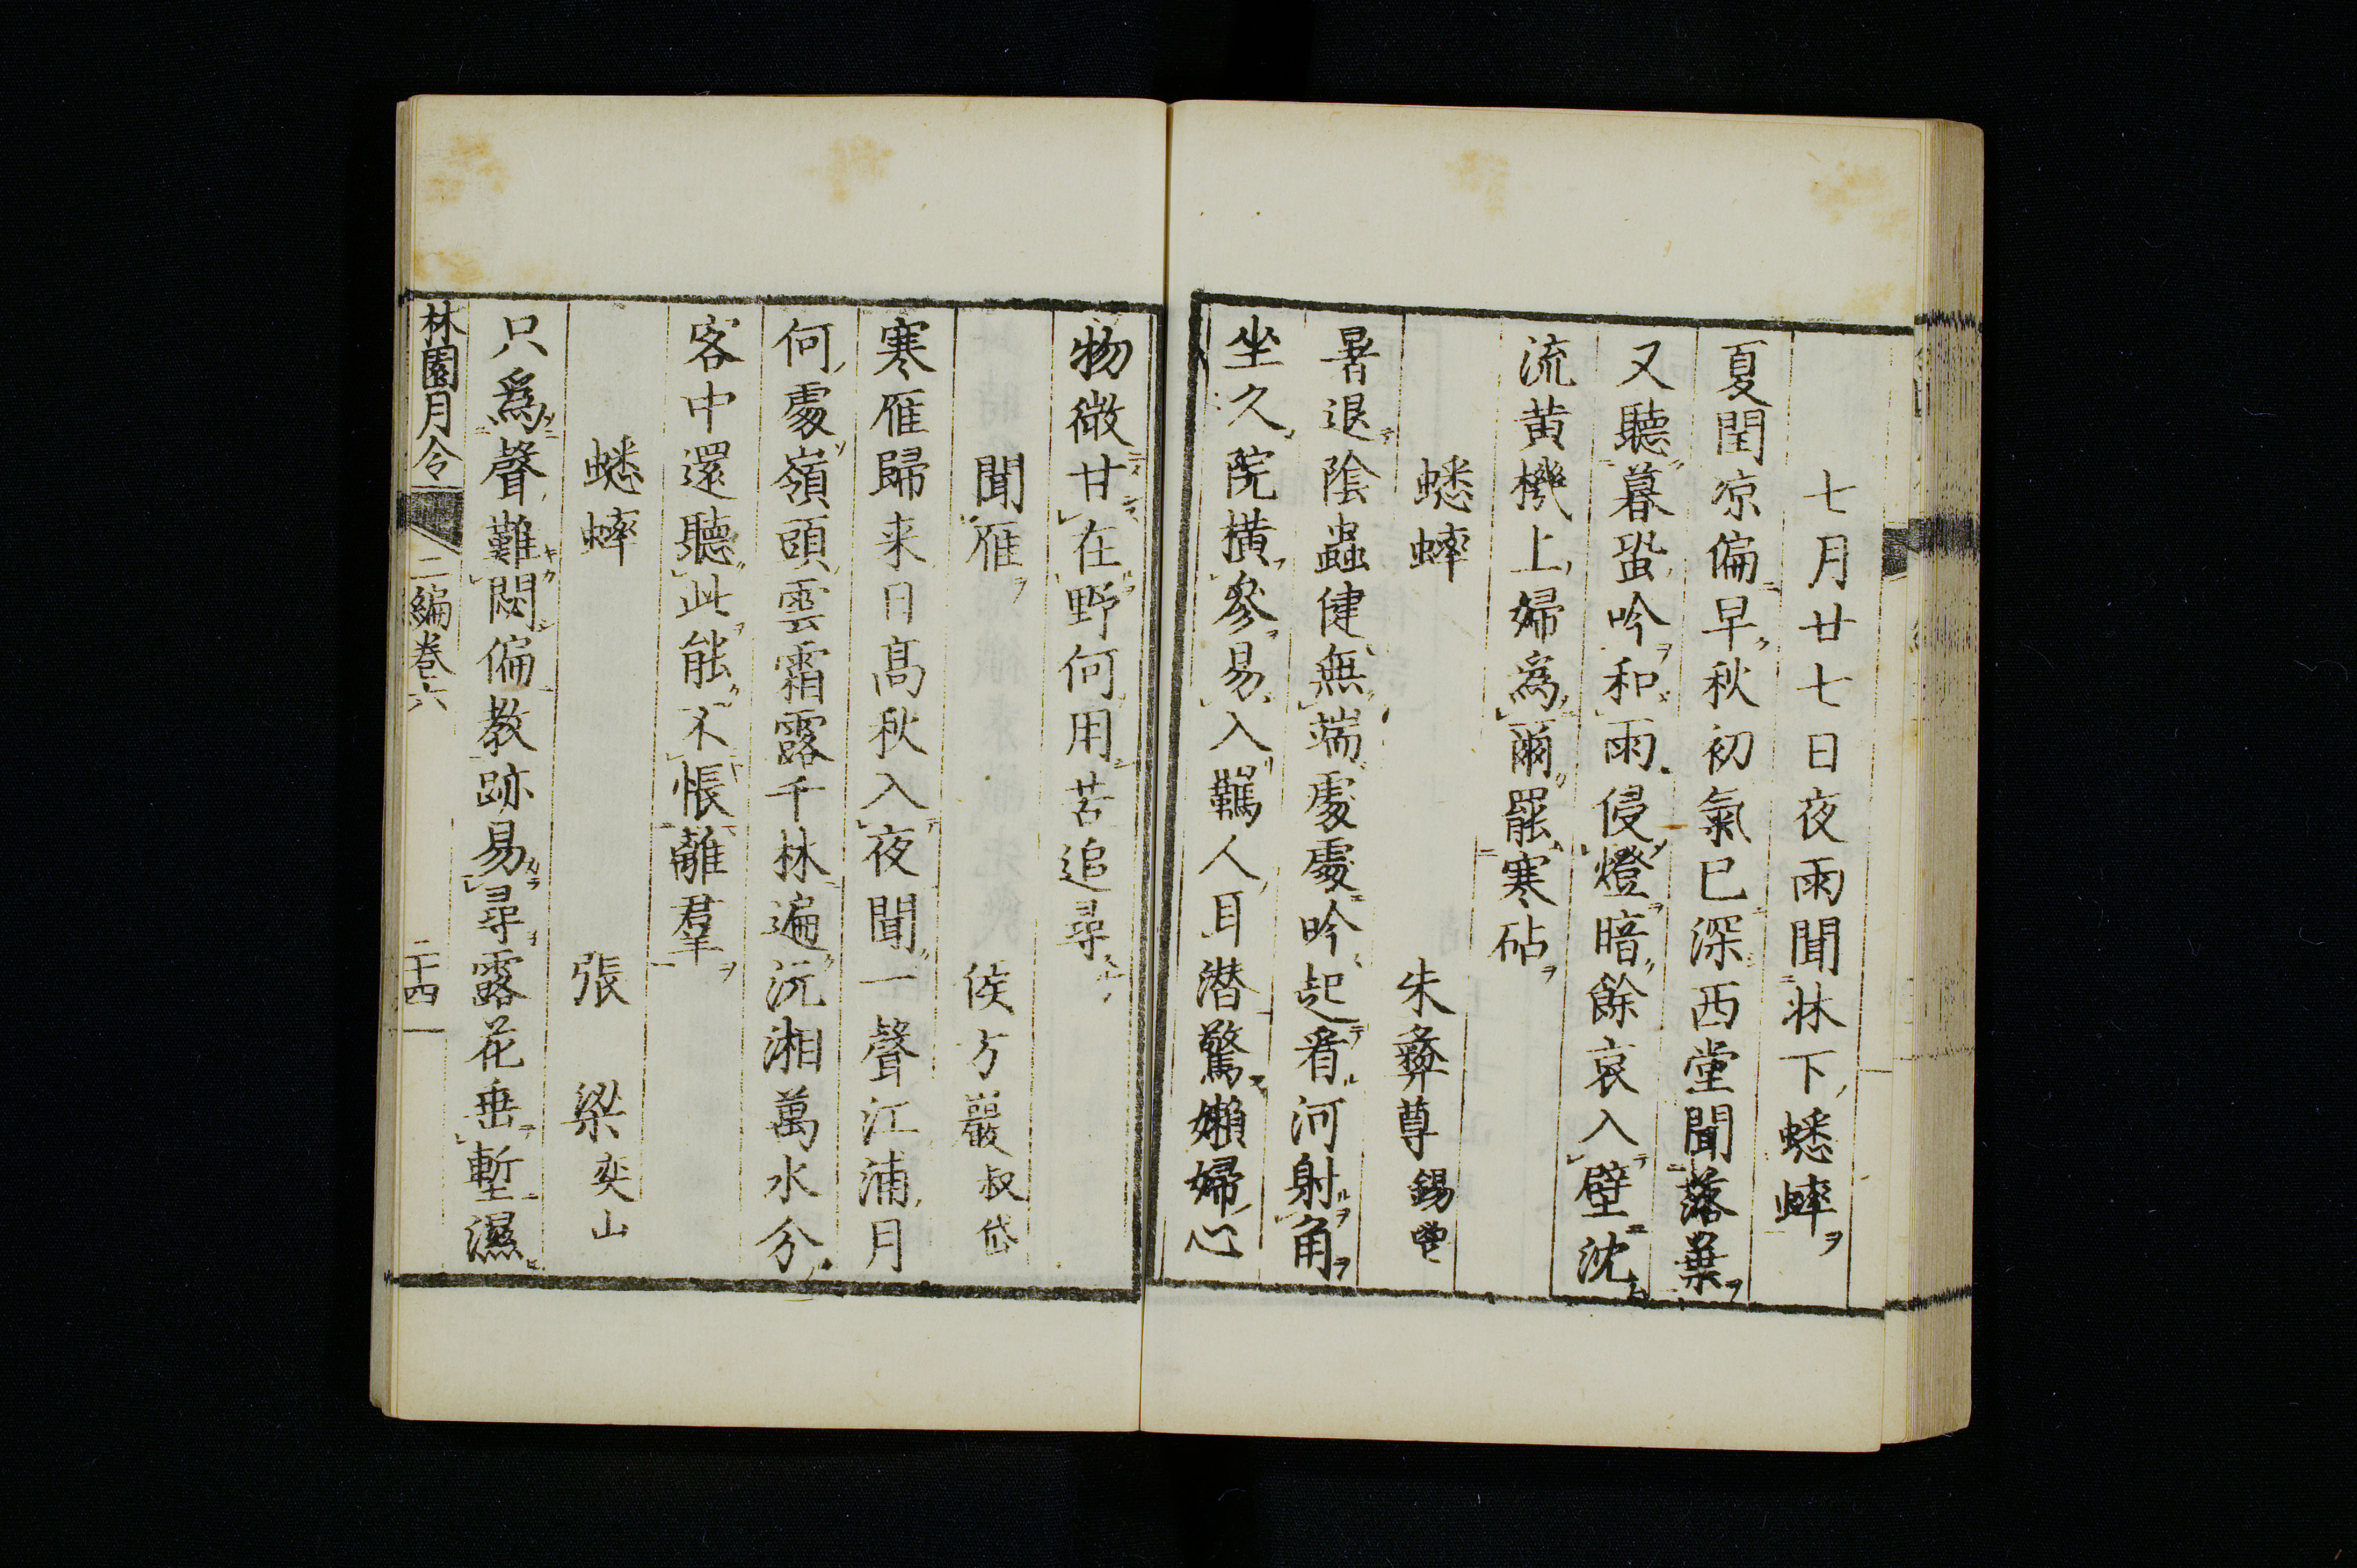 七月廿七日夜雨聞牀下蟋蟀
夏閏凉偏早秋初氣已深西堂聞落葉
又聽暮蛩吟和雨侵燈暗餘哀入壁沈
流黄機上婦爲爾罷寒砧
蟋蟀 朱彝尊錫鬯
暑退陰蟲健無端處處吟起看河射角
坐久院橫參易入羈人耳潜驚嬾婦心
物微甘在野何用苦追尋
聞雁 侯方巖叔岱
寒雁歸来日高秋入夜聞一聲江浦月
何處嶺頭雲霜露千林遍沅湘萬水分
客中還聽此能不悵離羣
蟋蟀 張梁奕山
只爲聲難閟偏教跡易尋露花垂塹濕
林園月令 二編卷六 二十四